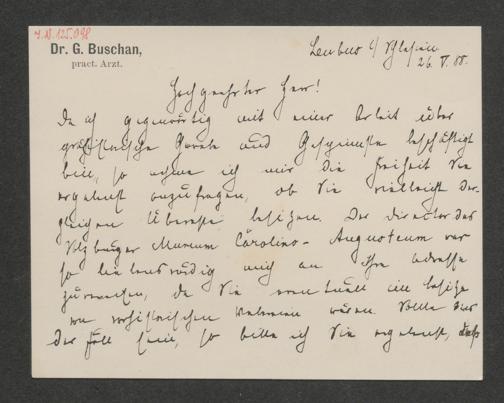 J.N. 125.098
Dr. G. Buschan,
pract. Arzt.
Leubus i/ Schlesien
26. V. 88.
Hochgeehrter Herr!
Da ich gegenwärtig mit einer Arbeit über
prähistorische Gewebe und Gespinnste beschäftigt
bin, so nehme ich mir die Freiheit Sie
ergebenst anzufragen, ob Sie vielleicht der-
gleichen Überreste besitzen. Der Director des
Salzburger Museum Carolino-Augusteum war
so liebenswürdig mich an Ihre Adresse
zu verweisen, da Sie eventuell im Besitze
von vorhistorischen Webereien wären. Sollte dies
der Fall sein, so bitte ich Sie ergebenst, dass